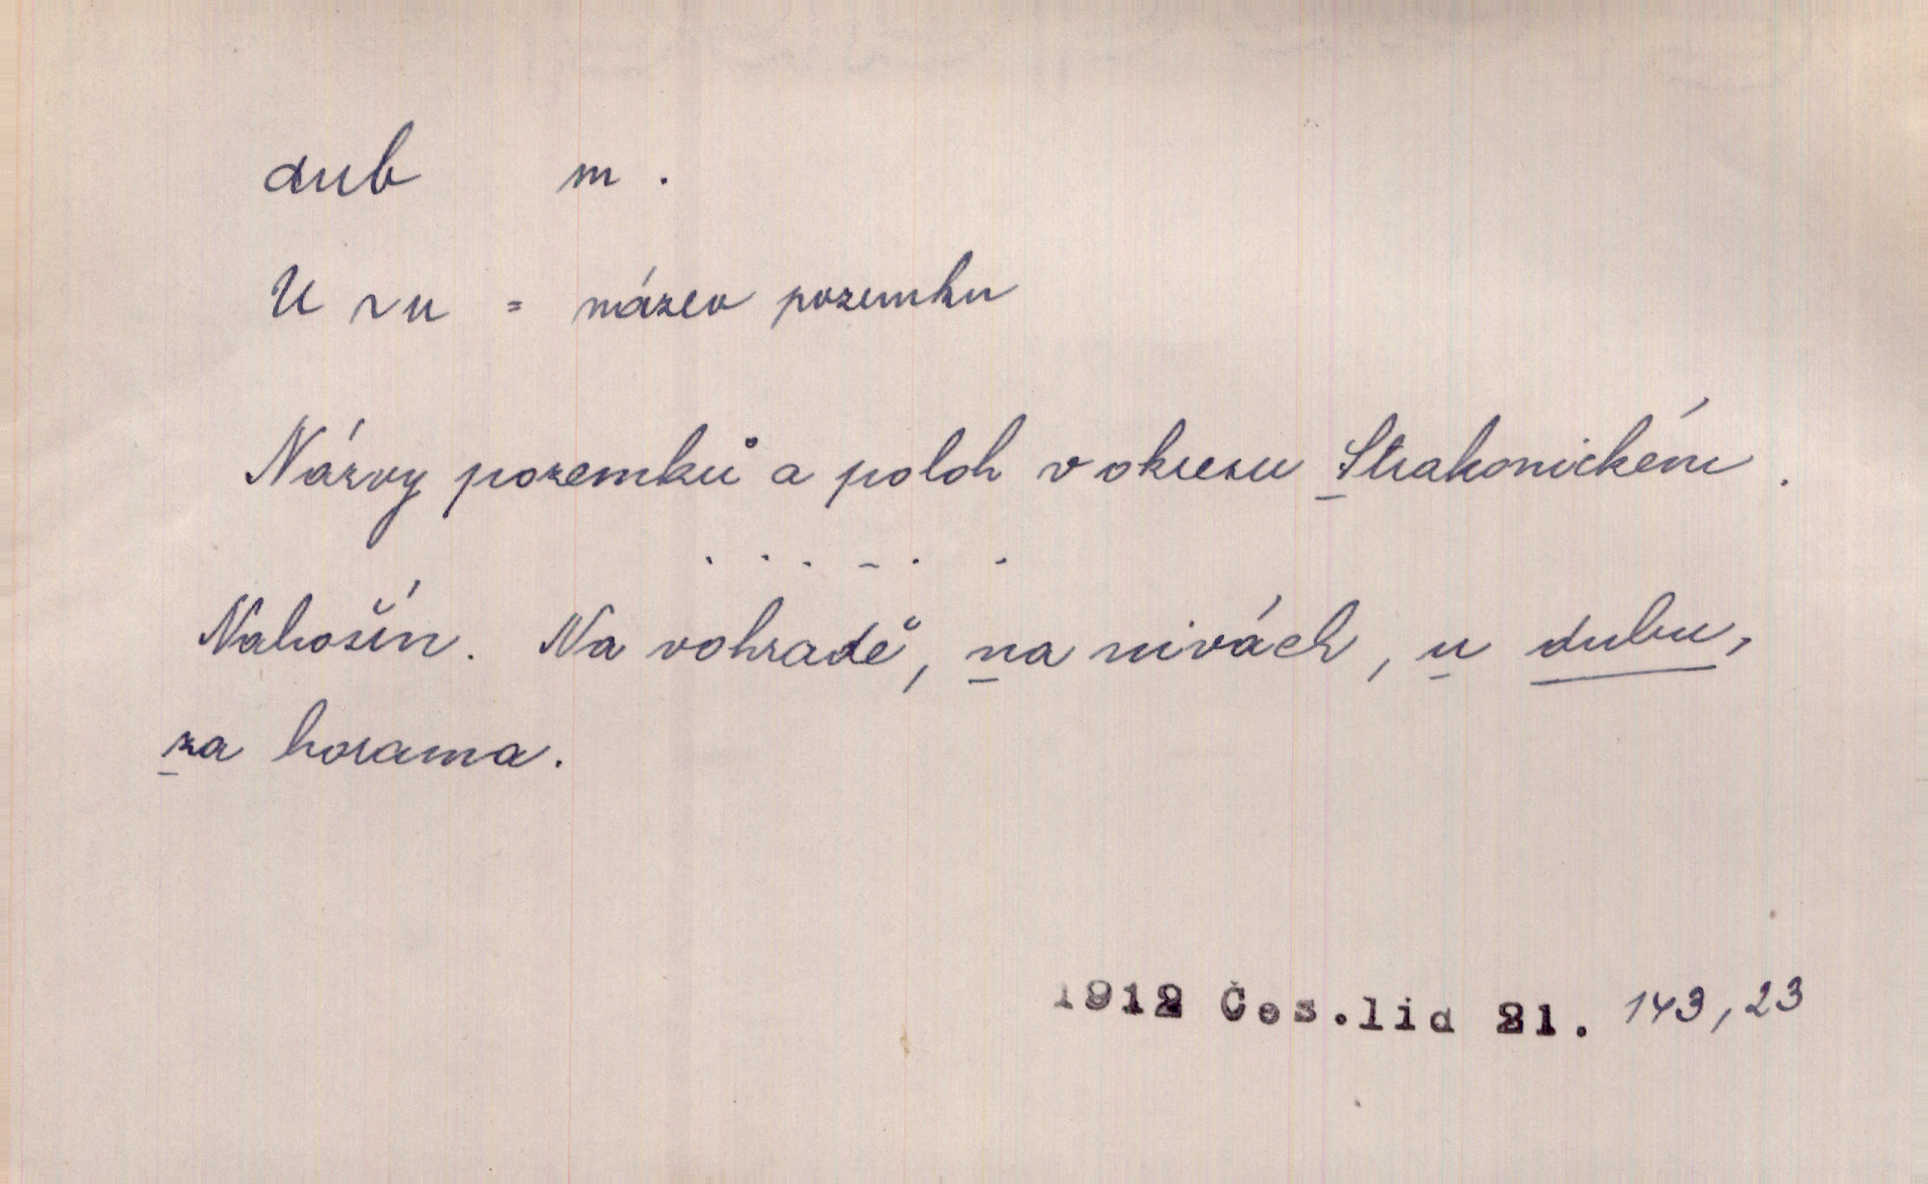 dub m.
U ~u = název pozemku
Názvy pozemků a poloh v okresu Strakonickém.
. . . - . .
Nahošín. Na vohradě, na nivách, u dubu,
za horama.
1912 Čes.lid 21. 143,23